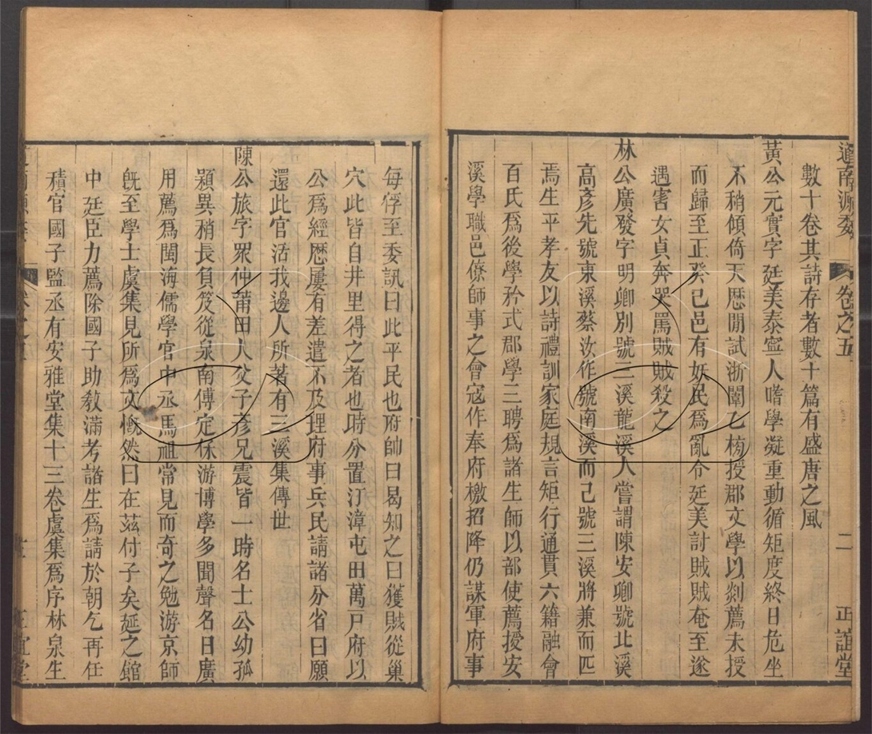 道南源委
卷之五
二
正誼堂
數十卷其詩存者數十篇有盛唐之風
黃公元實字廷美泰寧人嗜學凝重動循矩度終日危坐
不稍傾倚天歷間試浙闈乙榜授郡文學以剡薦未授
而歸至正癸巳邑有妖民為亂令廷美討賊賊奄至遂
遇害女貞奔哭罵賊賊殺之
林公廣發字明卿別號三溪龍溪人嘗謂陳安卿號北溪
高彥先號東溪蔡汝作號南溪而己號三溪將兼而匹
焉生平孝友以詩禮訓家庭規言矩行通貫六籍融會
百氏為後學矜式郡學三聘為諸生師以部使薦授安
溪學職邑僚師事之會寇作奉府檄招降仍謀軍府事
每俘至委訊曰此平民也府帥曰曷知之曰獲賊從巢
穴此皆自井里得之者也時分置汀漳屯田萬戶府以
公為經歷屢有差遣不及理府事兵民請諸分省曰願
還此官活我邊人所著有三溪集傳世
陳公旅字眾仲莆田人父子彥兄震皆一時名士公幼孤
穎異稍長負笈從泉南傅定保游博學多聞聲名日廣
用薦為閩海儒學官中丞馬祖常見而奇之勉游京師
既至學士虞集見所為文慨然曰在茲付子矣延之館
中廷臣力薦除國子助教滿考諸生為請於朝乞再任
積官國子監丞有安雅堂集十三卷虞集為序林泉生